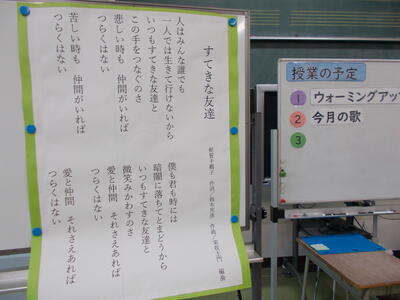 すてきな友達
人はみんな誰でも
一人では生きて行けないから
いつもすてきな友達と
この手をつなぐのさ
悲しい時も 仲間がいれば
つらくはない
苦しい時も 仲間がいれば
つらくはない
僕も君も時には
暗闇に落ちてとまどうから
いつもすてきな友達と
微笑みかわすのさ
愛と仲間 それさえあれば
つらくはない
愛と仲間 それさえあれば
つらくはない
授業の予定
1 ウォーミングアップ
2 今月の歌
3